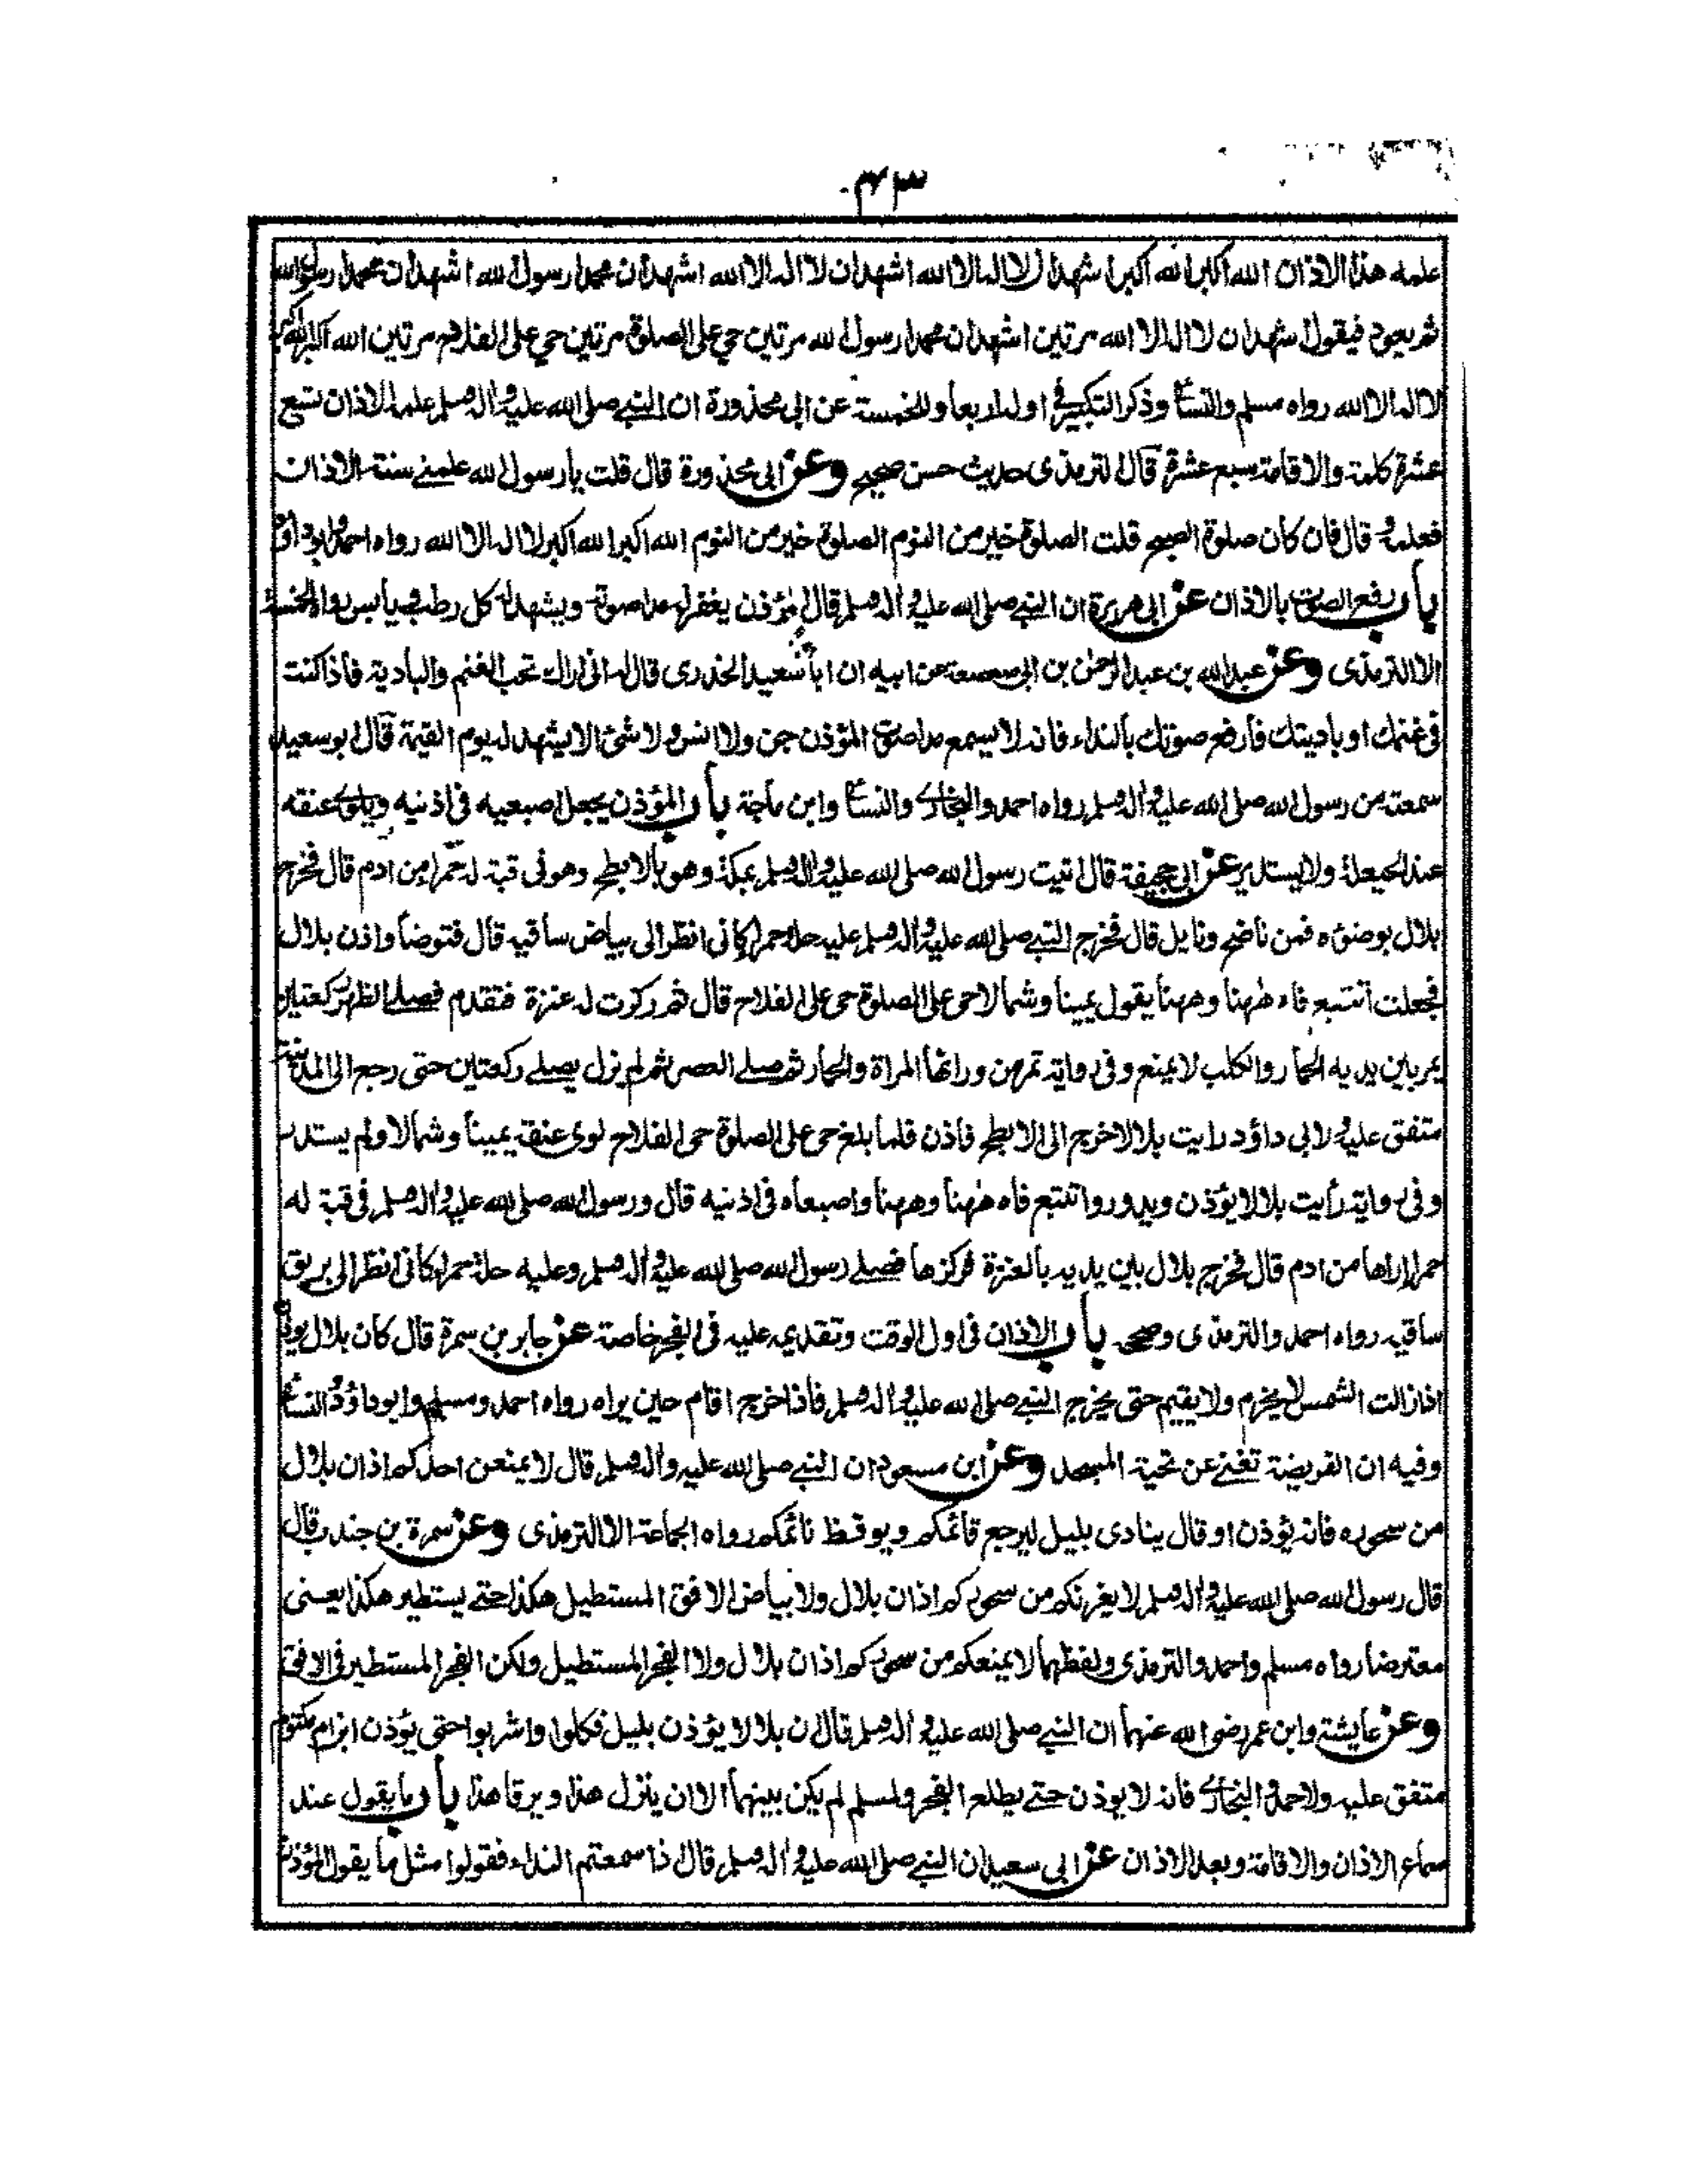 ٣٤٣
علمه هذا الاذان الله اكبر الله اكبر اشهد ان لا اله الا الله اشهد ان لا اله الا الله اشهد ان محمدا رسول الله اشهد ان محمدا رسول الله
ثم يعود فيقول اشهد ان لا اله الا الله مرتين اشهد ان محمدا رسول الله مرتين حي على الصلوة مرتين حي على الفلاح مرتين الله اكبر الله اكبر
لا اله الا الله رواه مسلم والنسائي وذكر التكبير في اوله اربعا وللخمسة عن ابى محذورة ان النبي صلى الله عليه واله وسلم علمه الاذان تسع
عشرة كلمة والاقامة سبع عشرة قال الترمذى حديث حسن صحيح وعن ابى محذورة قال قلت يا رسول الله علمني سنة الاذان
فعلمه وقال فان كان صلوة الصبح قلت الصلوة خير من النوم الصلوة خير من النوم الله اكبر الله اكبر لا اله الا الله رواه احمد وابو داؤد
باب رفع الصوت بالاذان عن ابى هريرة ان النبي صلى الله عليه واله وسلم قال المؤذن يغفر له مدا صوته ويشهد له كل رطب ويابس رواه الخمسة
الا الترمذى وعن عبد الله بن عبد الرحمن بن ابى صعصعة عن ابيه ان ابا سعيد الخدرى قال له انى اراك تحب الغنم والبادية فاذا كنت
فى غنمك او باديتك فارفع صوتك بالنداء فانه لا يسمع مدا صوت المؤذن جن ولا انس ولا شئ الا يشهد له يوم القيمة قال ابو سعيد
سمعته من رسول الله صلى الله عليه واله وسلم رواه احمد والبخارى والنسائي وابن ماجة باب المؤذن يجعل اصبعيه فى اذنيه ويلوى عنقه
عند الحيعلة ولا يستدير عن ابى جحيفة قال اتيت رسول الله صلى الله عليه واله وسلم بمكة وهو بالابطح وهو فى قبة له حمرا من ادم قال فخرج
بلال بوضوءه فمن ناضح ونايل قال فخرج النبي صلى الله عليه واله وسلم عليه حلة حمرا كانى انظر الى بياض ساقيه قال فتوضأ واذن بلال
فجعلت اتتبع فاه ههنا وههنا يقول يمينا وشمالا حى على الصلوة حى على الفلاح قال ثم ركزت له عنزة فتقدم فصلى الظهر ركعتين
يمر بين يديه الحمار والكلب لا يمنع وفى رواية تمر من ورائها المراة والحمار ثم صلى العصر ثم لم يزل يصلى ركعتين حتى رجع الى المدينة
متفق عليه ولابى داؤد رايت بلالا خرج الى الابطح فاذن فلما بلغ حى على الصلوة حى الفلاح لوى عنقه يمينا وشمالا ولم يستدر
وفى رواية رأيت بلالا يؤذن ويدور واتتبع فاه ههنا وههنا واصبعاه فى اذنيه قال ورسول الله صلى الله عليه واله وسلم فى قبة له
حمرا اراها من ادم قال فخرج بلال بين يديه بالعنزة فركزها فصلى رسول الله صلى الله عليه واله وسلم وعليه حلة حمرا كانى انظر الى بريق
ساقيه رواه احمد والترمذى وصححه باب الاذان فى اول الوقت وتقديمه عليه فى الفجر خاصة عن جابر بن سمرة قال كان بلال يؤذن
اذا زالت الشمس لا يخرم ولا يقيم حتى يخرج النبي صلى الله عليه واله وسلم فاذا خرج اقام حين يراه رواه احمد ومسلم وابو داؤد والنسائي
وفيه ان الفريضة تغنى عن تحية المسجد وعن ابن مسعود ان النبي صلى الله عليه واله وسلم قال لا يمنعن احدكم اذان بلال
من سحوره فانه يؤذن او قال ينادى بليل ليرجع قائمكم ويوقظ نائمكم رواه الجماعة الا الترمذى وعن سمرة بن جندب قال
قال رسول الله صلى الله عليه واله وسلم لا يغرنكم من سحوركم اذان بلال ولا بياض الافق المستطيل هكذا حتى يستطير هكذا يعنى
معترضا رواه مسلم واحمد والترمذى ولفظهما لا يمنعكم من سحوركم اذان بلال ولا الفجر المستطيل ولكن الفجر المستطير فى الافق
وعن عايشة وابن عمر رضى الله عنهما ان النبي صلى الله عليه واله وسلم قال ان بلالا يؤذن بليل فكلوا واشربوا حتى يؤذن ابن ام مكتوم
متفق عليه ولاحمد والبخارى فانه لا يوذن حتى يطلع الفجر ولمسلم لم يكن بينهما الا ان ينزل هذا ويرقا هذا باب ما يقول عند
سماع الاذان والاقامة وبعد الاذان عن ابى سعيد ان النبي صلى الله عليه واله وسلم قال اذا سمعتم النداء فقولوا مثل ما يقول المؤذن